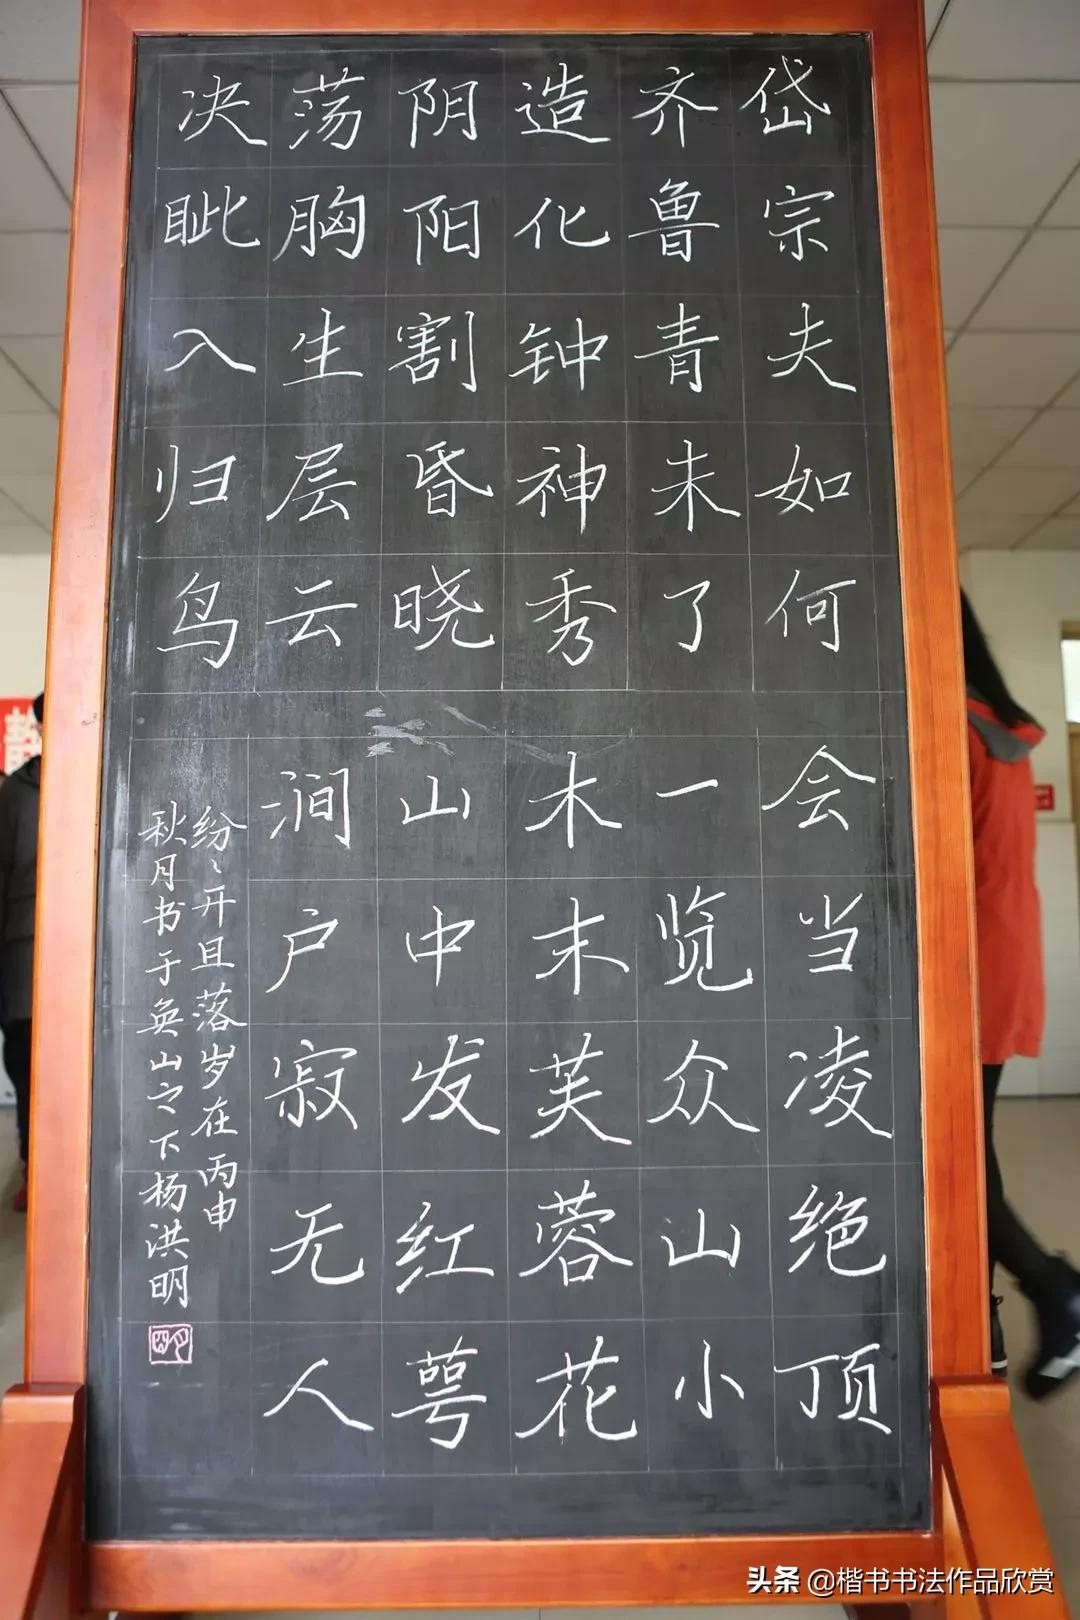 岱宗夫如何
齐鲁青未了
造化钟神秀
阴阳割昏晓
荡胸生层云
决眦入归鸟
会当凌绝顶
一览众山小
木末芙蓉花
山中发红萼
涧户寂无人
纷〻开且落岁在丙申
秋月书于奂山之下杨洪明
头条 @楷书书法作品欣赏